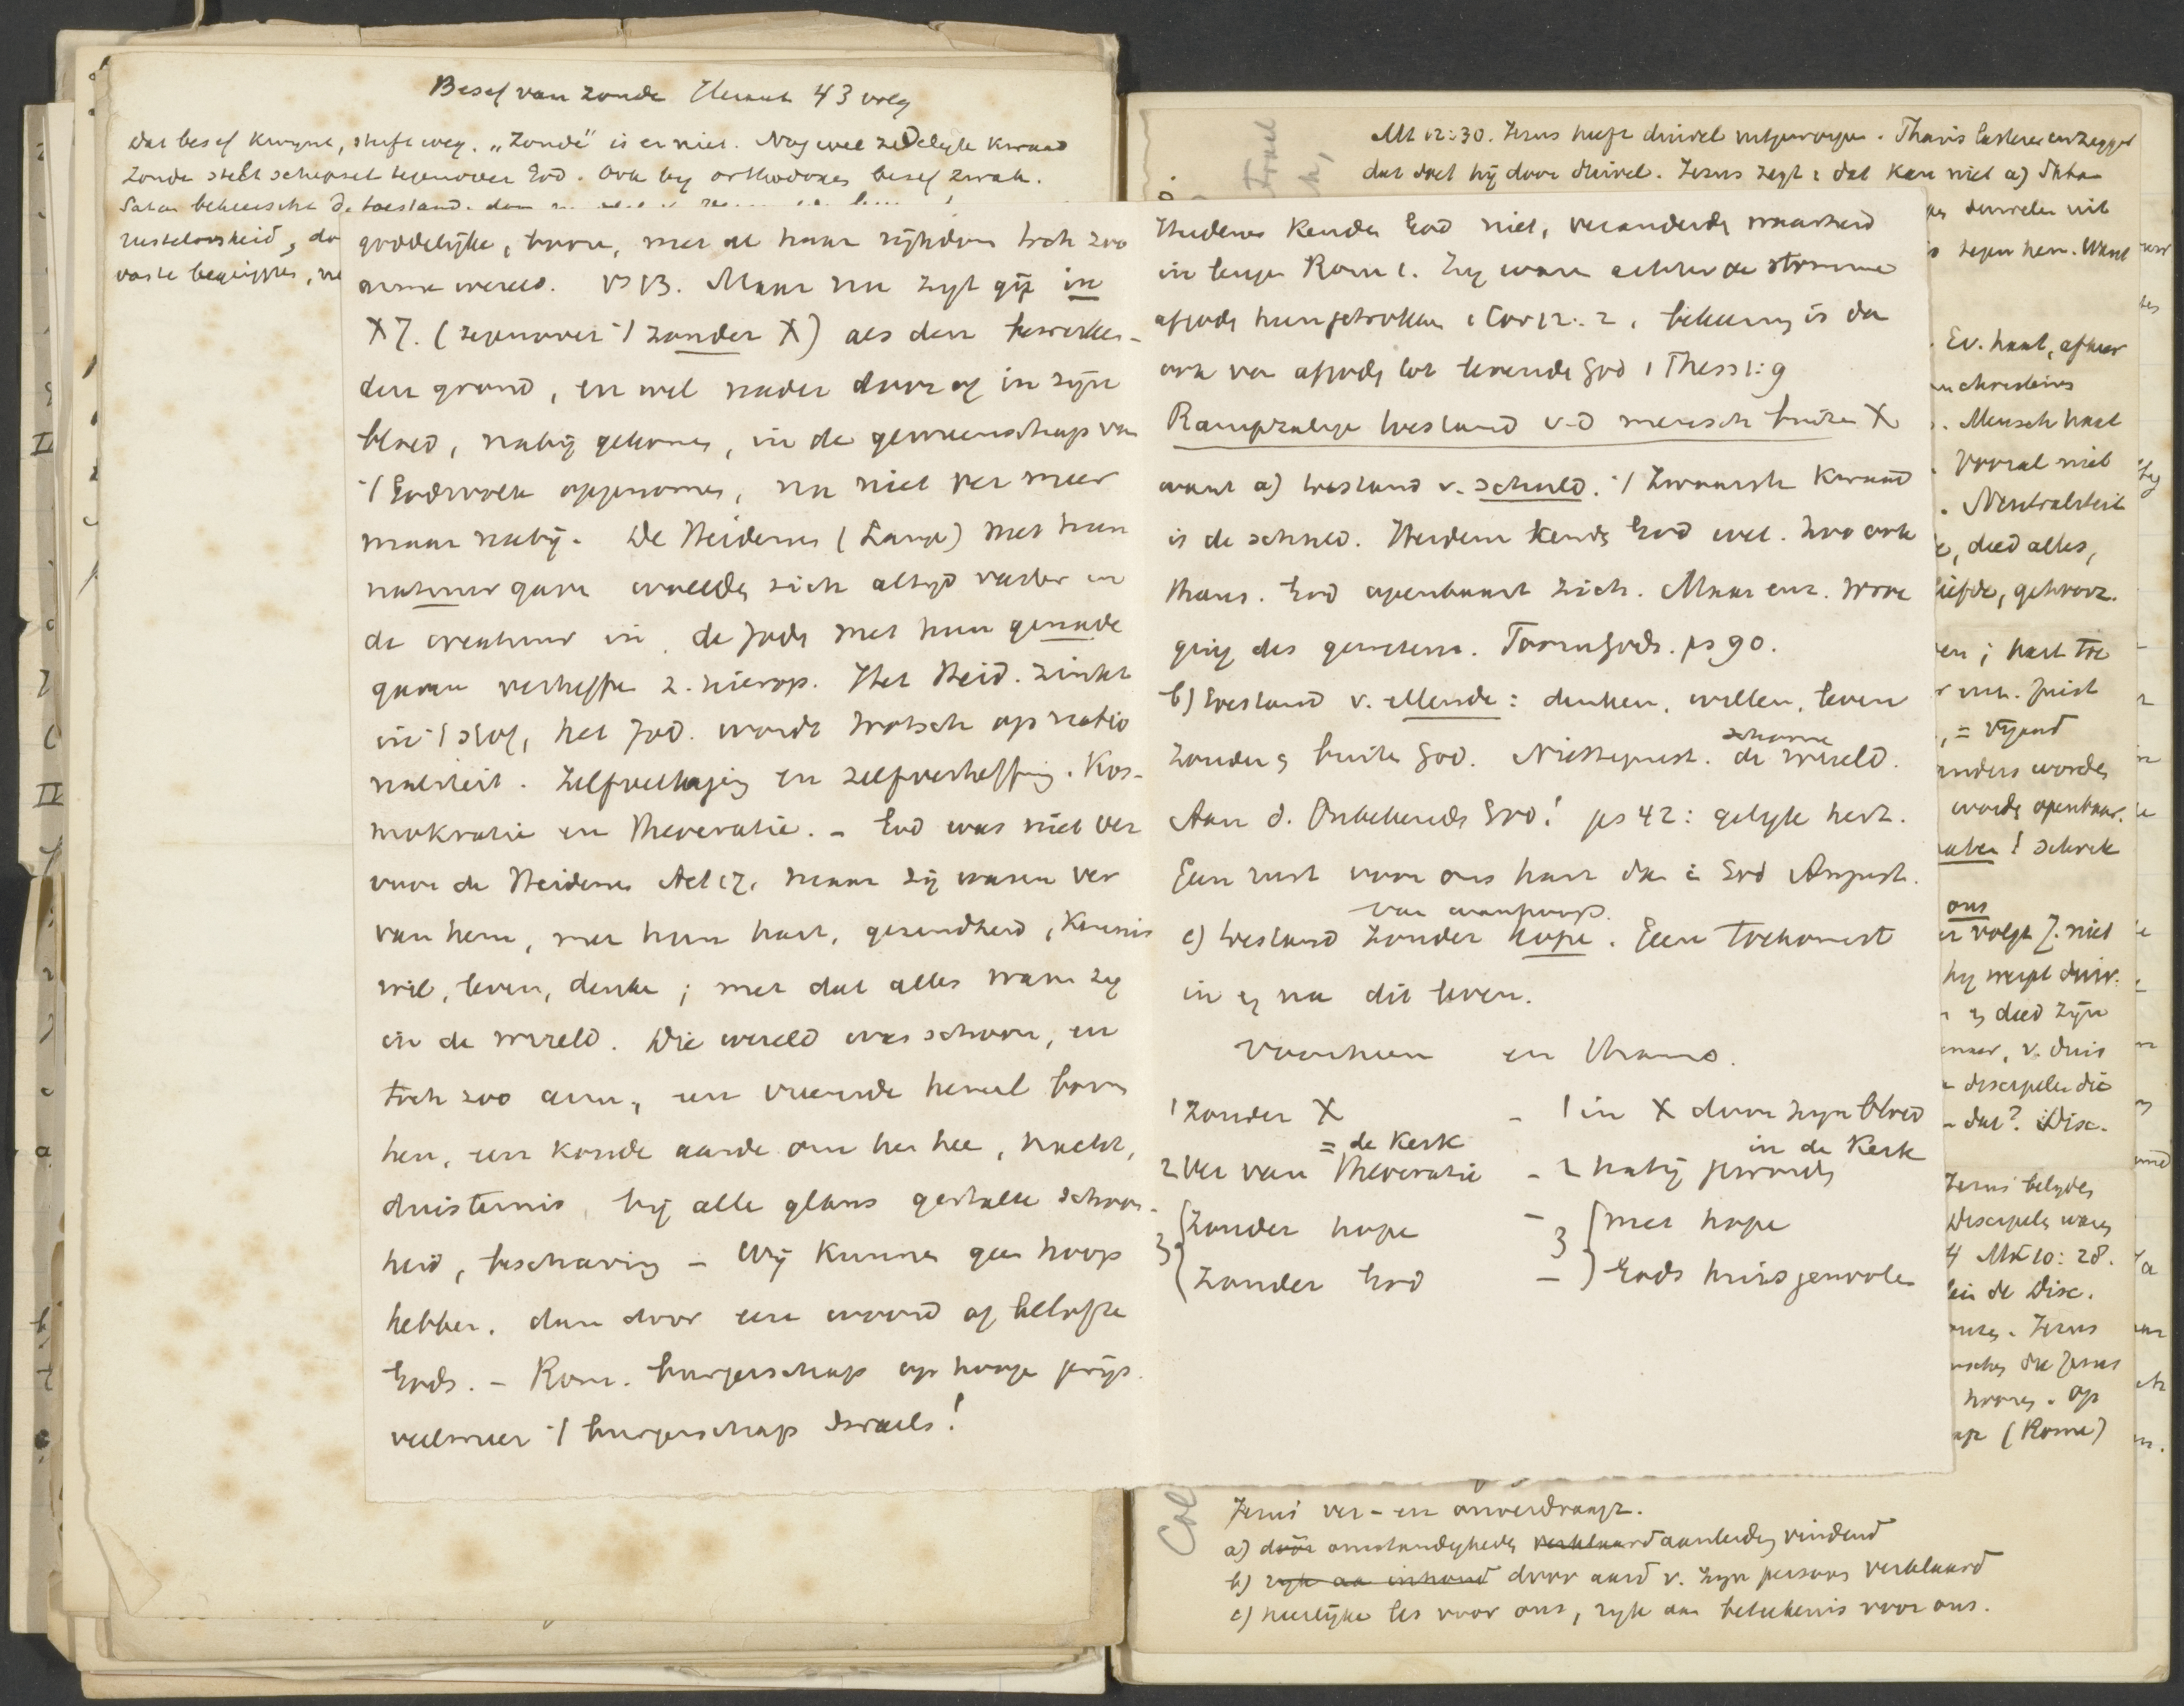 Besef van zonde Heraut 43 volg
dat besef kwynt, slyft weg. „Zonde" is er niet. Nog wel zedelyk kwaad
Zonde stelt schepsel tegenover God. Ook by orthodoxes besef zwak.
Satan beheerscht de toestand.
rusteloosheid, do
vaste begrippen, ve
goddelijke, bron, met al haar rijkdom toch zoo
arme wereld. vs 13. Maar nu zyt gij in
X J. (tegenover 't zonder X) als den bewerken-
den grond, en wel nader door of in zijn
bloed, nabij gekomen, in de gemeenschap van
't Godsvolk opgenomen, nu niet ver meer
maar nabij. De Heidenen (Lange) met hun
natuur gave wreelde zich altijd vaster in
de creatuur in, de Joden met hun genade
gaven verheffen z. hierop. Het Heid. zinkt
in 't stof, het Jod. wordt trotsch op natio
naliteit. Zelfverlaging en zelfverheffing. Kos-
mokratie en Theocratie. – God was niet ver
voor de Heidenen Act 17, maar zij waren ver
van hem, met hun hart, gezindheid, kennis
wil, leven, denken; met dat alles waren zy
in de wereld. Die wereld was schoon, en
toch zoo arm, een vreemde hemel boven
hen, een koude aarde om hen hee, nacht,
duisternis, bij alle glans gestalte schoon-
heid, beschaving – Wij kunnen geen hoop
hebben, dan door een woord of belofte
Gods. – Rom. burgerschap op hooge prijs.
veelmeer 't burgerschap Israels!
Heidenen kenden God niet, veranderde waarheid
in leugen Rom 1. Zy waren achter de stomme
afgoden heengetrokken 1 Cor 12:2, bekeering is dan
ook van afgoden tot levende God 1 Thess 1:9
Rampzalige toestand v-d mensch buiten X
want a) toestand v. schuld. 't Zwaarste kwaad
is de schuld. Heidenen kende God wel. Zoo ook
thans. God openbaart zich. Maar enz. wroe
ging des gewetens. Toorn Gods. ps 90.
b) toestand v. ellende: denken, willen, leven
schoone
zonder, buiten God. Niettegenst. de wereld.
Aan d. Onbekende God! ps 42: gelyk hert.
Geen rust voor ons hart dan i God August.
van wanhoop.
c) toestand zonder hope. Geen toekomst
in en na dit leven.
Voorheen en thans.
1 Zonder X – 1 in X door zyn bloed
= de Kerk in de Kerk
2 Ver van Theocratie – 2 nabij geworden
3 zonder hope – 3 met hope
zonder God – Gods huisgenooten
Mt 12:30. Jezus heeft duivel uitgeworpen. Phariz lasteren en zeggen
dat doet hij door duivel. Jezus zegt: dat kan niet a) Satan
duivelen uit
tegen hem. Want
Ev. haat, afkeer
christelus
. Mensch haat
. Vooral niet
. Neutraliteit
, deed alles,
liefde, gehoorz.
; hart toe
. Juist
, = vyand
anders worden
worde openbaar.
! schrik
ons
volgt J. niet
hy werpt duiv.
deed zijn
, v. duis
discipelen die
dat? Disc.
Jezus belyden
Discipelen waren
Mt 10:28.
in de Disc.
. Jezus
die Jezus
hooren. Op
(Rome)
Col
Jezus ver- en onverdraagz.
a) door omstandigheden verklaard aanleiding vindend
b) ryk aa inhoud door aard v. zyn persoon verklaard
c) heerlijke les voor ons, ryk aan beteekenis voor ons.